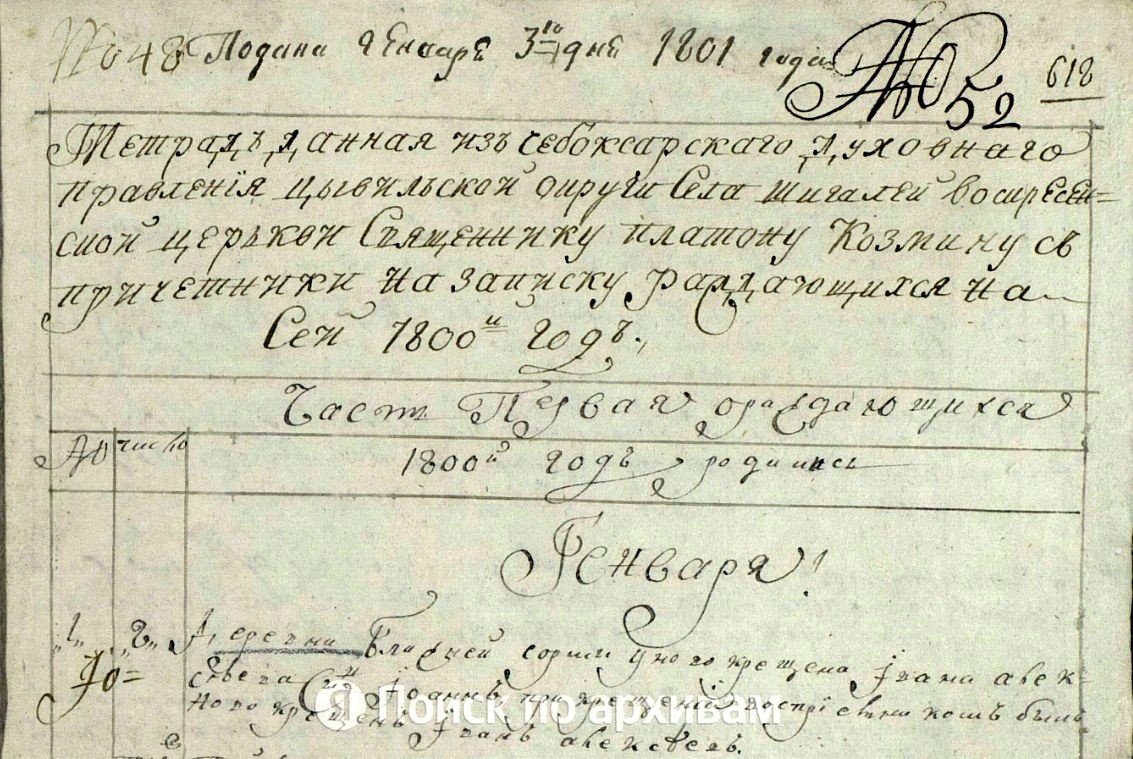 № 48 Подана генваря 3го дня 1801 года № 52 618
Тетрадь данная изъ Чебоксарскаго духовнаго
правленія цывильской округи Села шигалей воскресен=
ской церькви Священнику платону Козмину съ
причетники на записку раждающихся на
Сей 1800й годъ.
Часть Первая о раждающихся
№ число 1800й годъ родились
Генваря
1 2 деревни сорми у новокрещена Ивана алек=
сѣева Сынъ Іоаннъ при крещеніи воспріемникомъ былъ
новокрещенъ Иванъ алексѣевъ.
Поиск по архивам